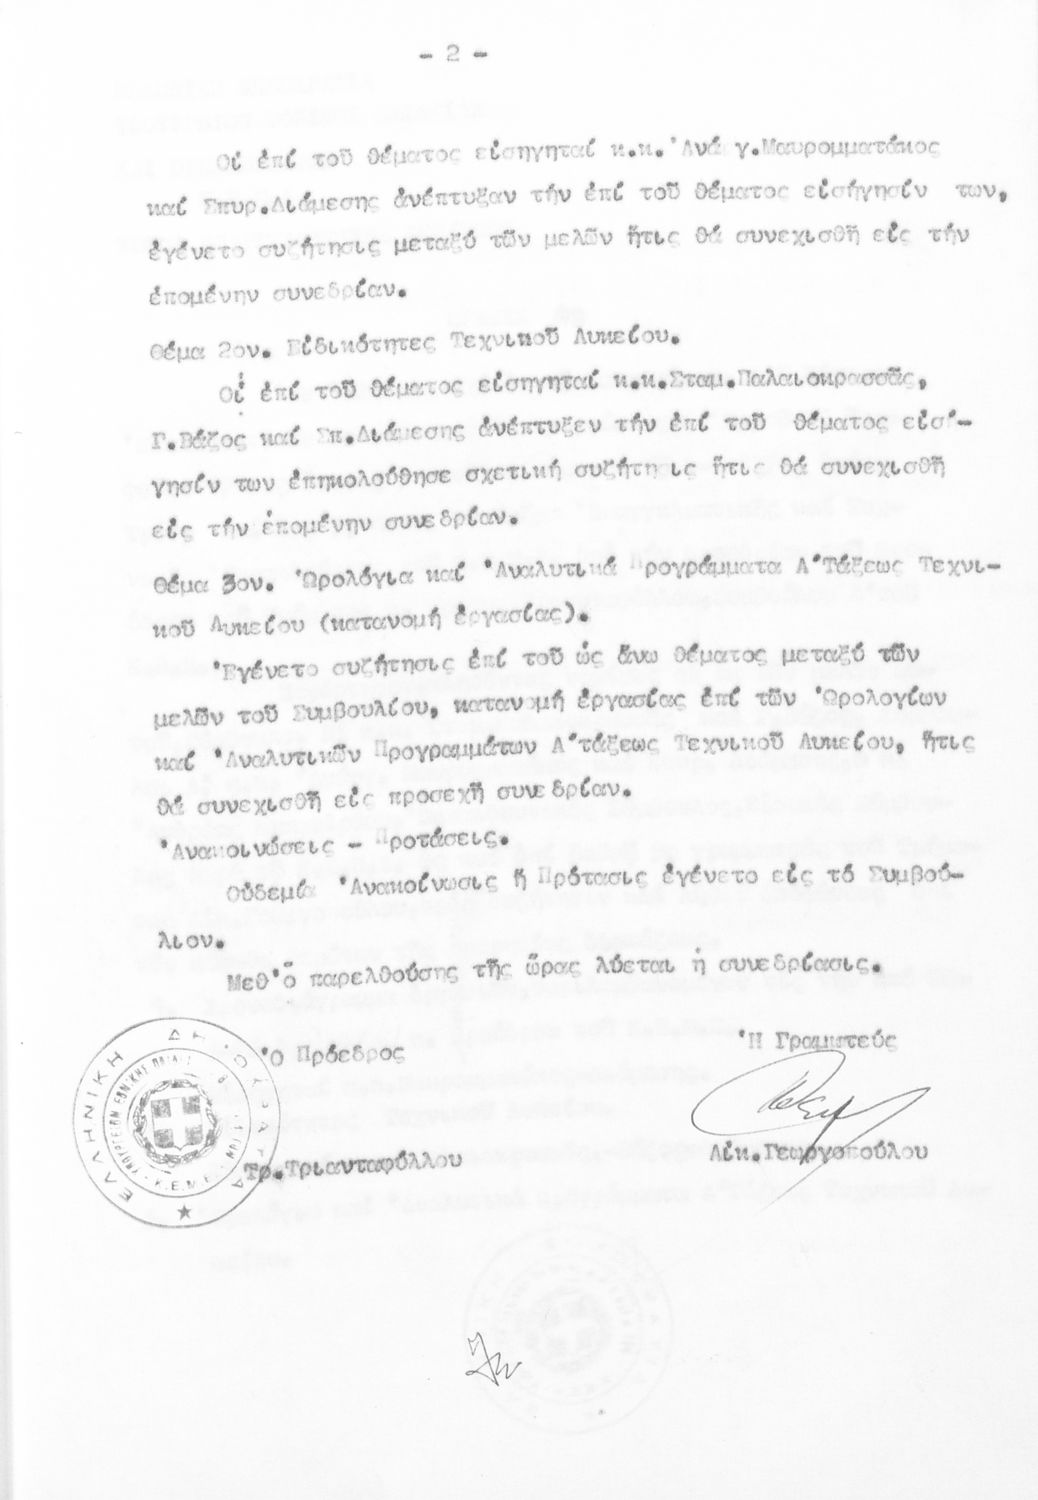 - 2 -
Οἱ ἐπί τοῦ θέματος εἰσηγηταί κ.κ. Ἀνάγ.Μαυρομματάκος
καί Σπυρ.Διάμεσης ἀνέπτυξαν τήν ἐπί τοῦ θέματος εἰσήγησίν των,
ἐγένετο συζήτησις μεταξύ τῶν μελῶν ἥτις θά συνεχισθῆ εἰς τήν
ἑπομένην συνεδρίαν.
Θέμα 2ον. Εἰδικότητες Τεχνικοῦ Λυκείου.
Οἱ ἐπί τοῦ θέματος εἰσηγηταί κ.κ.Σταμ.Παλαιοκρασσᾶς,
Γ.Βάζος καί Σπ.Διάμεσης ἀνέπτυξεν τήν ἐπί τοῦ θέματος εἰσή-
γησίν των ἐπηκολούθησε σχετική συζήτησις ἥτις θά συνεχισθῆ
εἰς τήν ἑπομένην συνεδρίαν.
Θέμα 3ον. Ὡρολόγια καί Ἀναλυτικά Προγράμματα Α΄Τάξεως Τεχνι-
κοῦ Λυκείου (κατανομή ἐργασίας).
Ἐγένετο συζήτησις ἐπί τοῦ ὡς ἄνω θέματος μεταξύ τῶν
μελῶν τοῦ Συμβουλίου, κατανομή ἐργασίας ἐπί τῶν Ὡρολογίων
καί Ἀναλυτικῶν Προγραμμάτων Α΄τάξεως Τεχνικοῦ Λυκείου, ἥτις
θά συνεχισθῆ εἰς προσεχῆ συνεδρίαν.
Ἀνακοινώσεις - Προτάσεις.
Οὐδεμία Ἀνακοίνωσις ἤ Πρότασις ἐγένετο εἰς τό Συμβού-
λιον.
Μεθ' ὅ παρελθούσης τῆς ὥρας λύεται ἡ συνεδρίασις.
Ὁ Πρόεδρος Ἡ Γραμματεύς
Τρ.Τριανταφύλλου Αἰκ.Γεωργοπούλου
ΕΛΛΗΝΙΚΗ ΔΗΜΟΚΡΑΤΙΑ